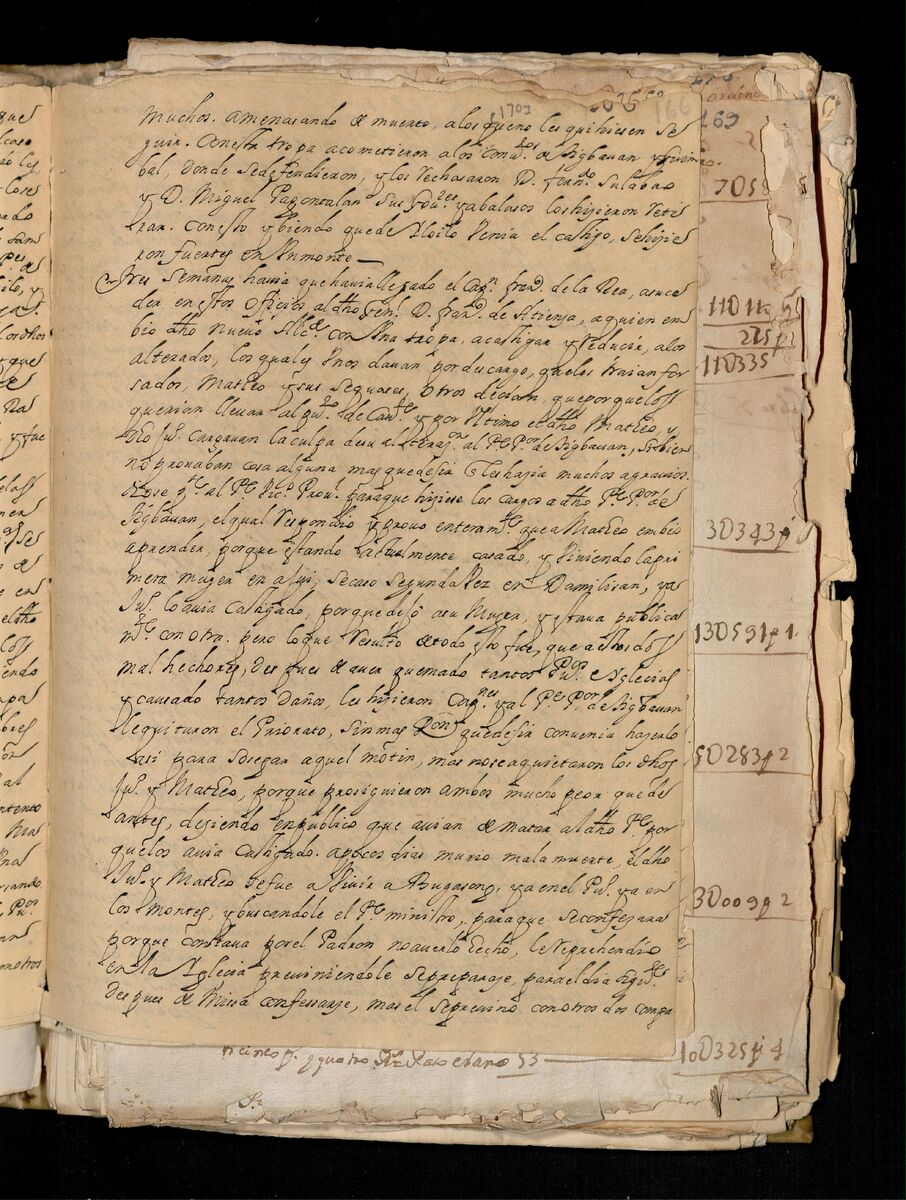 muchos. amenasando de muerto, a los q̃ no les quihiesen se
guir. Con esta tropa acometieron a los de Sigbauan y Guimbal
bal, donde se defendieron, y los rechasaron D. ferndo Sulabao
y D. Miguel Pagontalan sus Gou.res y a balasos los hizieron reti
rar. con esto y biendo que de Iloilo venia el castigo, se hizie
ron fuertes en un monte
Tres semanas havia que havia llegado el Cap.n fran.co de la Rea, a suce
der en estos oficios al dho Gen.l D. fran.co de Atienza, a quien en
bio dho nuevo Alc.de con una tropa, a castigar y reducir, a los
alterados, los quales unos davan por descargo, que los traian for
sados, Matheo y sus sequases, otros decian, que porque los
querian llevar al de y por ultimo el dho Matheo, y
dho Ju.o cargavan la culpa de su alteraz.on al P.e P.or de Sigbauan, si bien
no provaban cosa alguna mas que desir q̃ les hazia muchos agravios.
al P.e Vic.o Prov.l para que hiziese los cargos a dho P.e P.or de
Sigbauan, el qual respondio y provo enteram.te que a Matheo embio
a prender, porque estando actualmente casado, y viviendo la pri
mera muger en asiy, se caso segunda vez en Damilisan, y a
Ju.o lo avia castigado, porque dejó a su muger, y estava publica
m.te con otra. pero lo que resultó de todo esto fue, que a estos dos
mal hechores, despues de aver quemado tantos Pu.os e Iglesias
y causado tantos daños, les hizieron y al P.e P.or de Sigbauan
le quitaron el Priorato, sin mas que desir convenia haserlo
asi para sosegar aquel motin, mas no se aquietaron los dhos
Ju.o y Matheo, porque prosiguieron ambos mucho peor que de
antes, disiendo en publico que avian de matar al dho P.e por
que los avia castigado. a pocos dias murio mala muerte, el dho
Ju.o y Matheo se fue a vivir a Bugason, ya en el Pu.o ya en
los montes, y buscandole el P.e ministro, para que se confesara
porque constava por el Padron no averlo echo, le reprehendio
en la Yglesia previniendole se preparase, para el dia sig.te
despues de Missa confessarse, mas el se previno con otros dos compa
1703
166
169
11011
225 p
110335
30343 p
130591 p 1
50283 p 2
30009 p 2
100325 p 4
y quatro
53